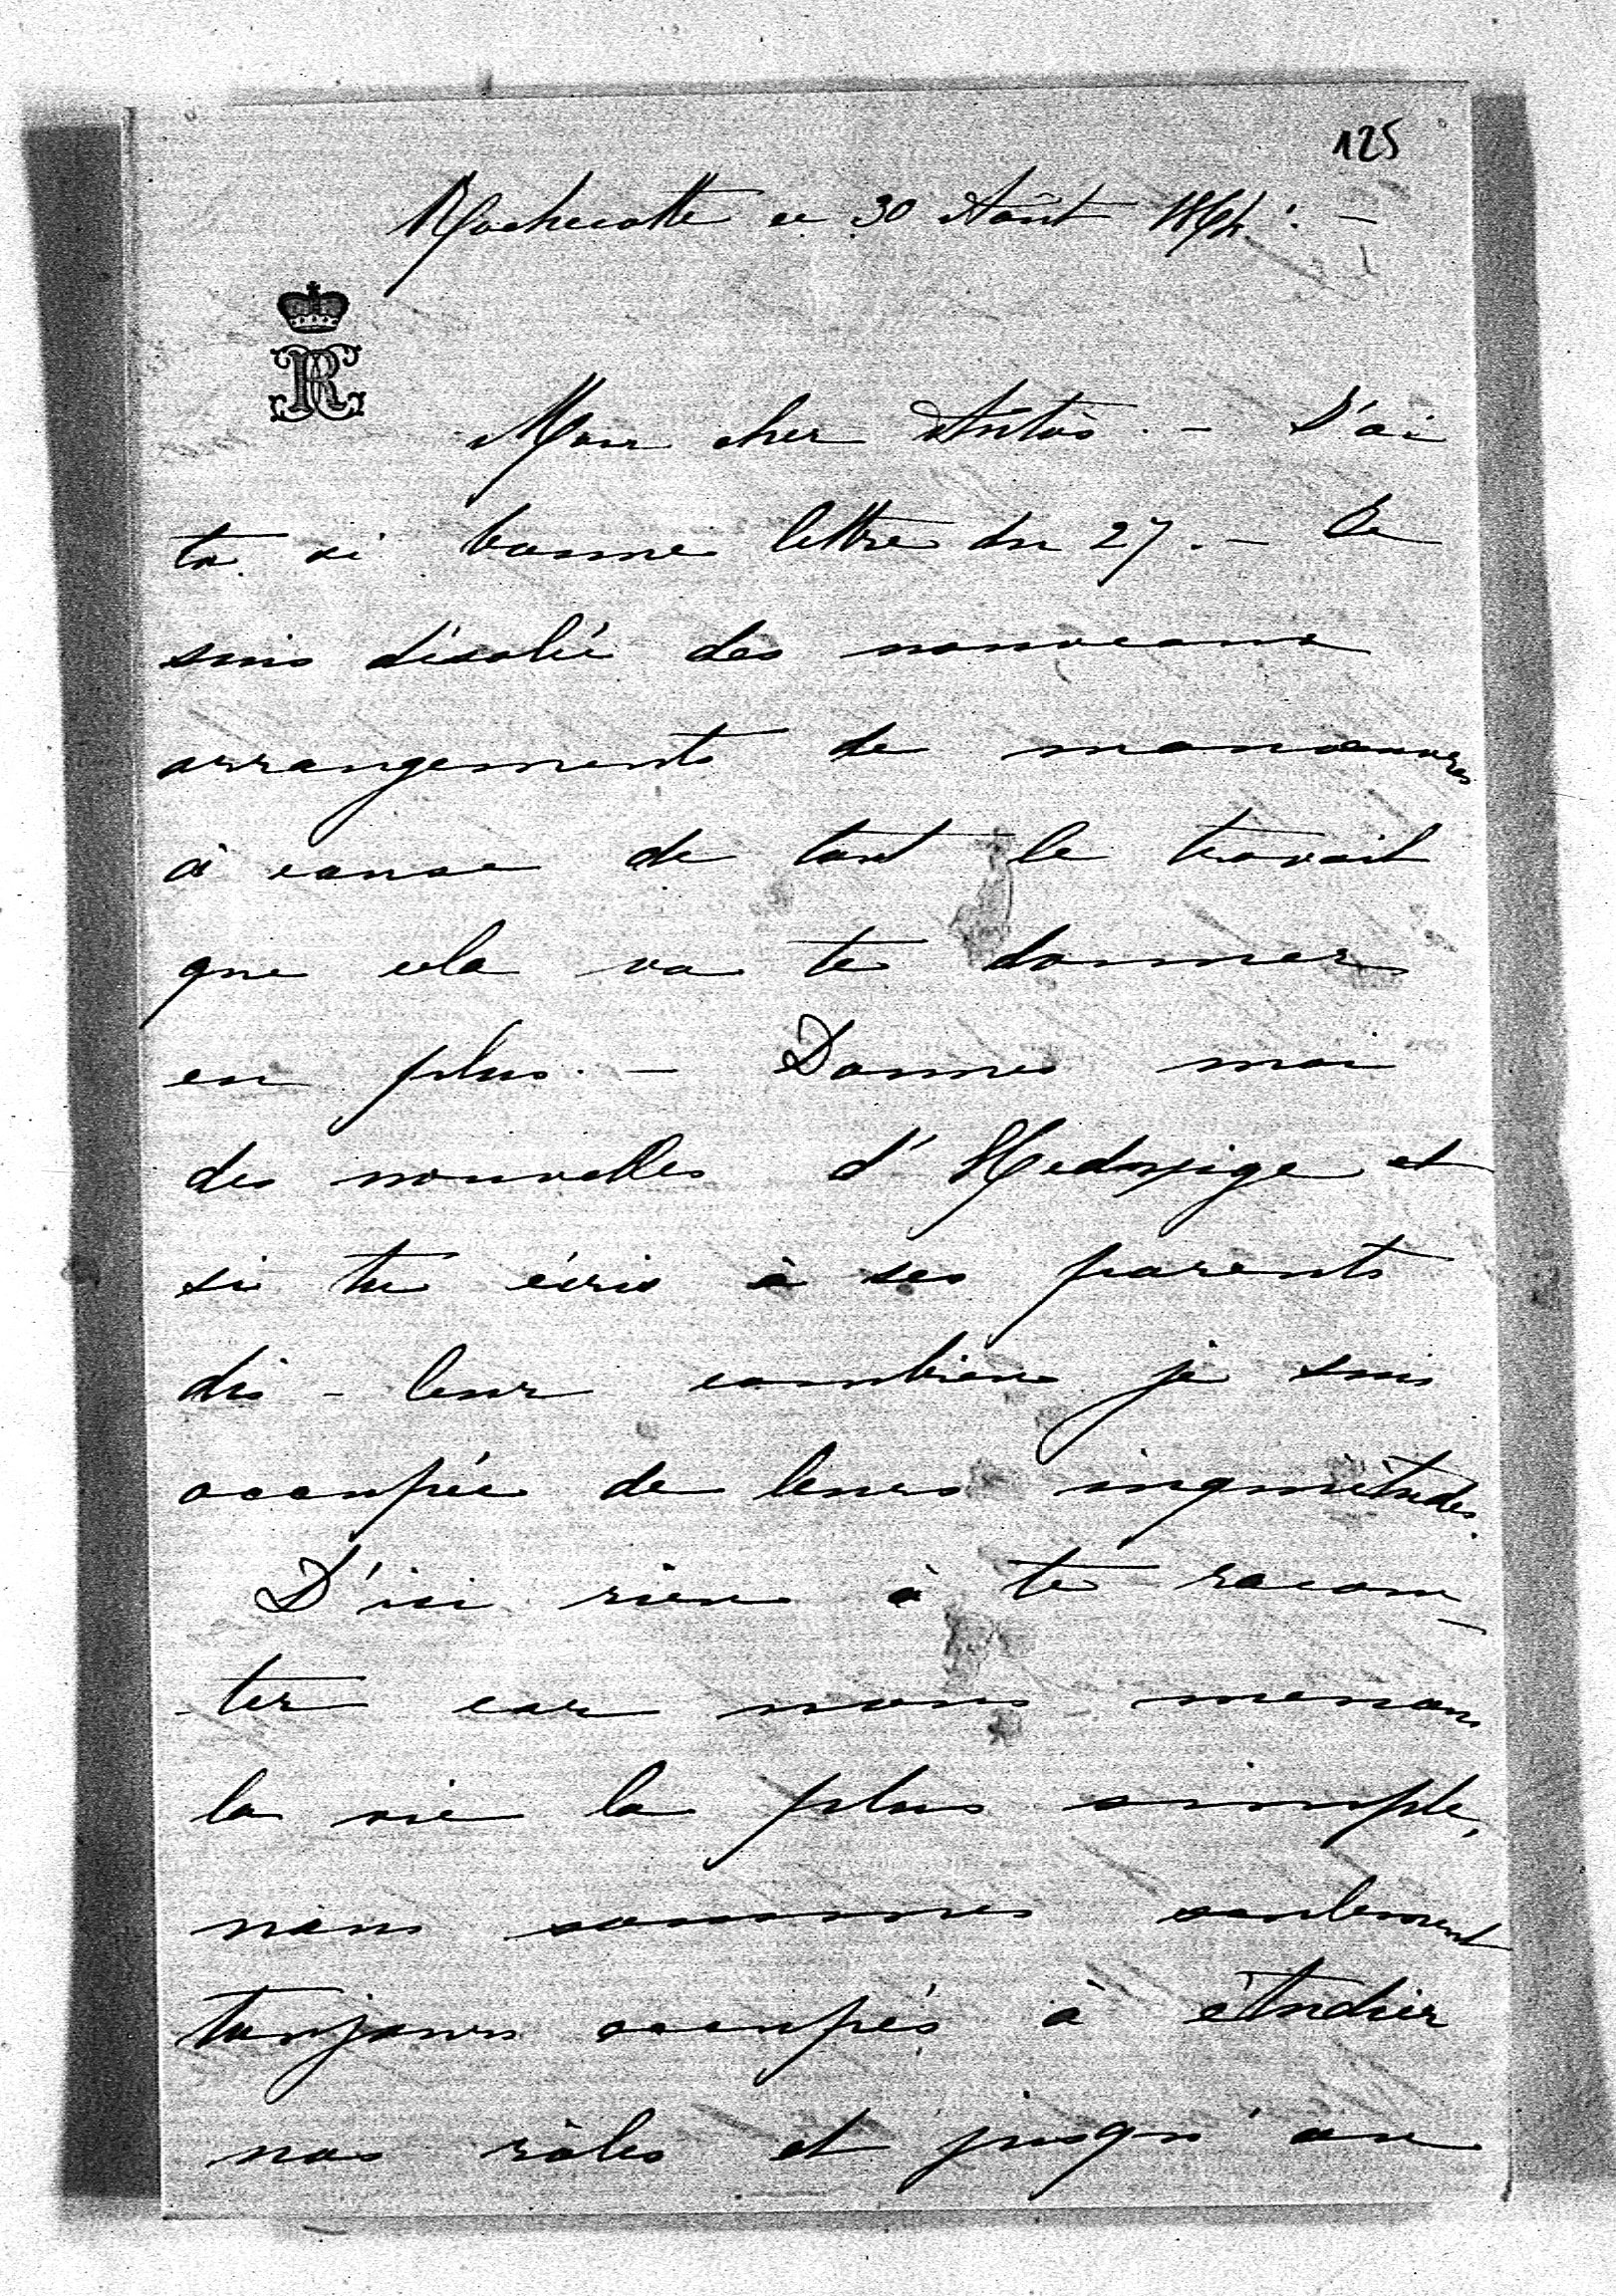 125
Rochecotte ce 30 Août
Mon cher Antos. - J'ai
ta si bonne lettre du 27. - Je
suis désolée des nouveaux
arrangements de manoeuvres
à cause de tout le travail
que cela va te donner
en plus. - Donnes moi
des nouvelles d'Hedwige et
si tu écris à ses parents
dis-leur combien je suis
occupée de leurs inquiètudes.
D'ici rien à te racon-
-ter car nous menons
la vie la plus simple,
nous sommes seulement
toujours occupés à étudier
nos rôles et jusqu'au